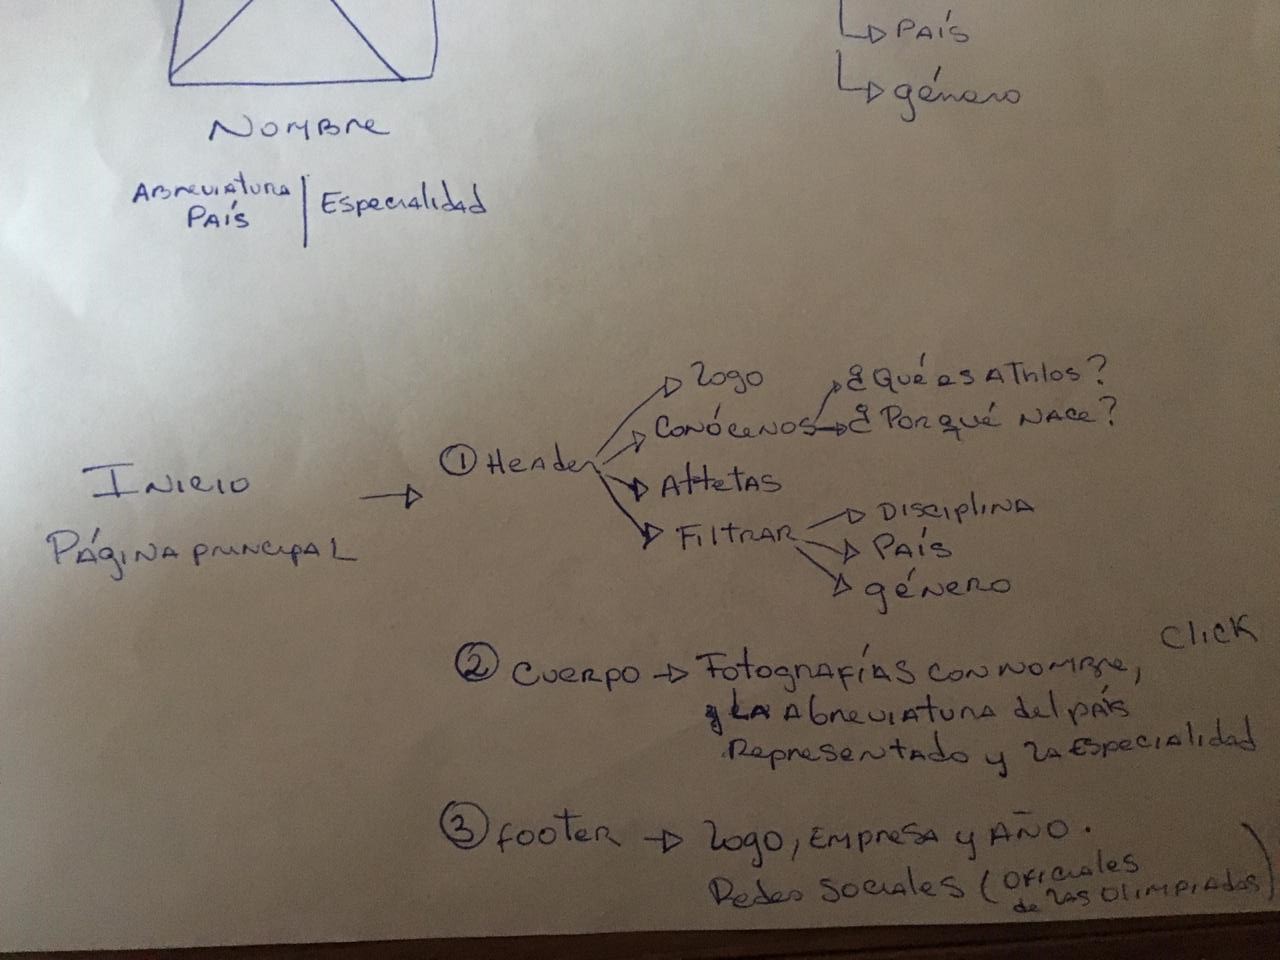 País
género
Nombre
Abreviatura
País
Especialidad
Inicio
Página principal
① Header
Logo
Conócenos
¿Qué es Athlos?
¿Por qué nace?
Atletas
Filtrar
Disciplina
País
género
② Cuerpo → Fotografías con nombre,
Click
y la Abreviatura del país
Representado y la Especialidad
③ footer → Logo, Empresa y Año.
Redes Sociales (Oficiales
de las Olimpiadas)